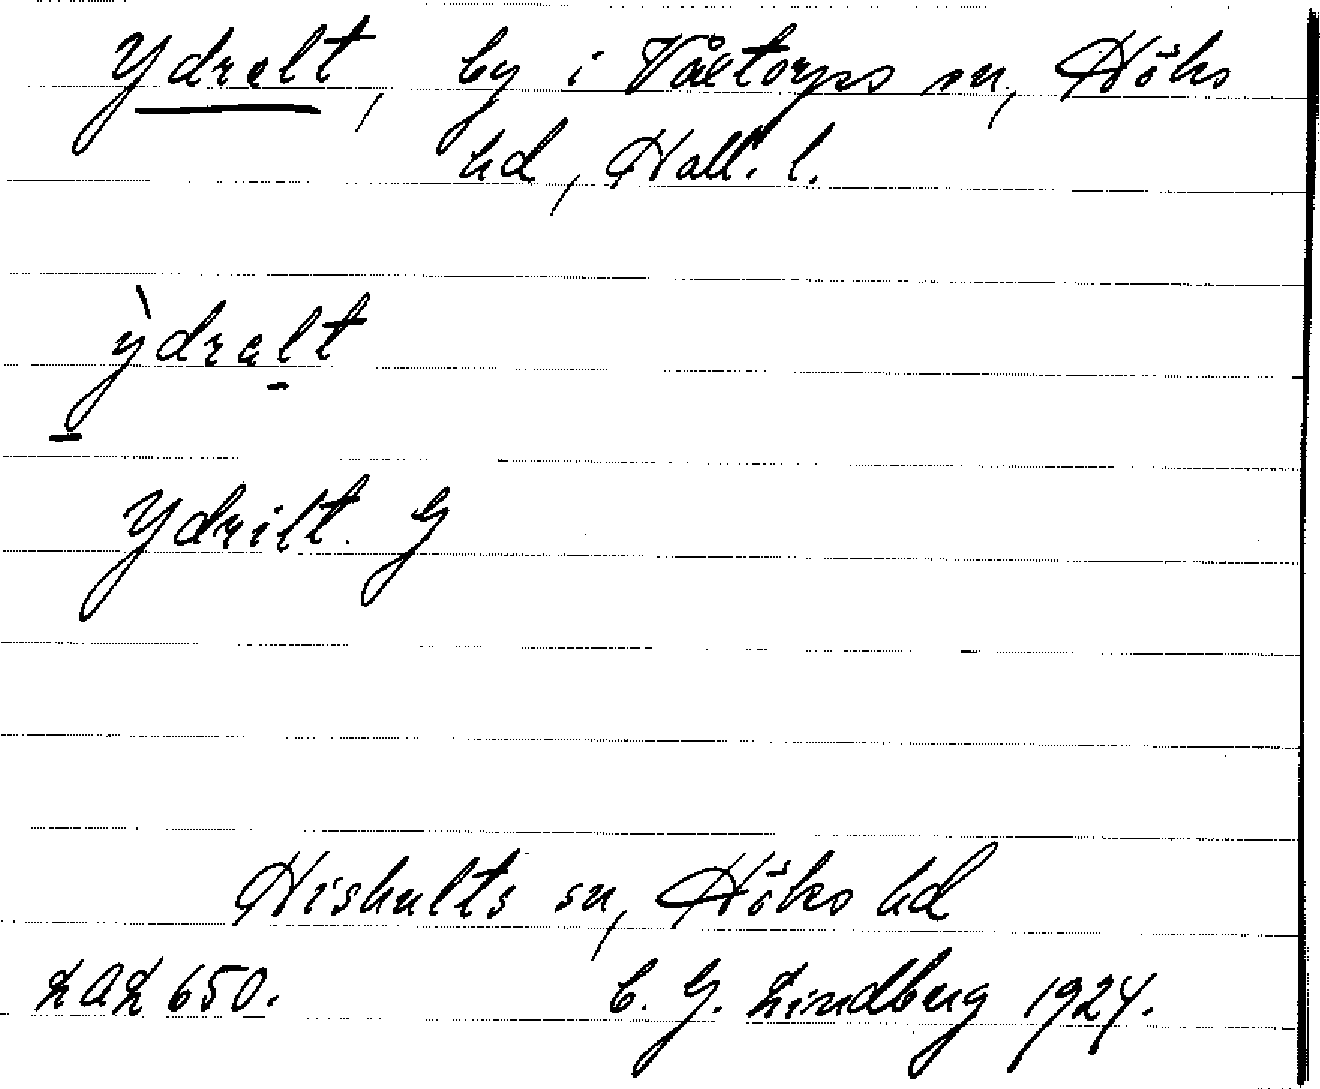 Ydrelt, by i Våxtorps sn, Höks
hd, Hall. l.
ỳdrαlt
Ydrilt. G
Hishults sn, Höks hd
LAL 650.
C. G. Lindberg 1924.